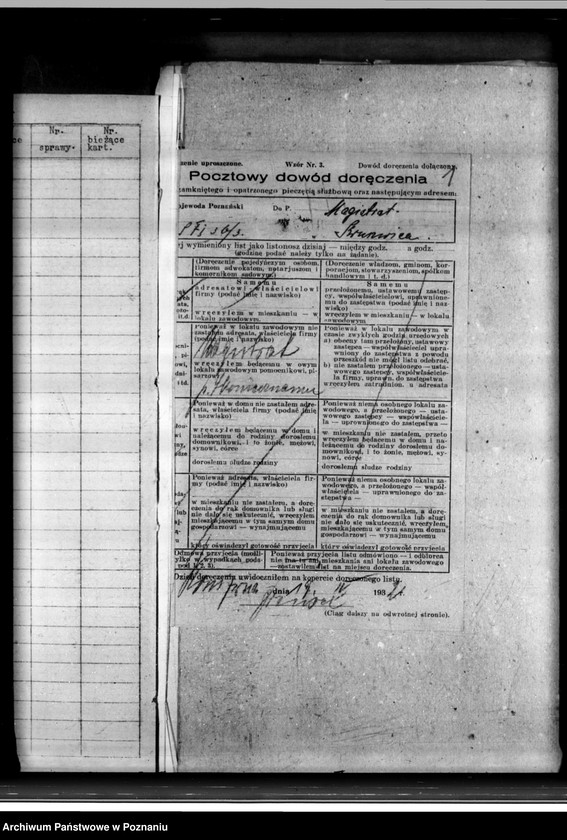 Nr.
sprawy.
Nr.
bieżące
kart.
zenie uproszczone. Wzór Nr. 3. Dowód doręczenia dołączony.
1
Pocztowy dowód doręczenia
zamkniętego i opatrzonego pieczęcią służbową oraz następującym adresem.
ajewoda Poznański
Do P. Magistrat
ej wymieniony list jako listonosz dzisiaj — między godz. a godz.
(godzinę podać należy tylko na żądanie).
(Doręczenie pojedyńczym osobom,
firmom adwokatom, notarjuszom i
komornikom sądowym)
S a m e m u
adresatowi — właścicielowi
firmy (podać imię i nazwisko)
wręczyłem w mieszkaniu — w
lokalu zawodowym.
Ponieważ w lokalu zawodowym nie
zastałem adresata, właściciela firmy
(podać imię i nazwisko)
Magistrat
wręczyłem będącemu w owym
lokalu zawodowym pomocnikowi, pi-
sarzowi
Ponieważ w domu nie zastałem adre-
sata, właściciela firmy (podać imię
i nazwisko)
wręczyłem będącemu w domu i
należącemu do rodziny dorosłemu
domownikowi, i to żonie, mężowi,
synowi, córce
dorosłemu słudze rodziny
Ponieważ adresata, właściciela fir-
my (podać imię i nazwisko)
w mieszkaniu nie zastałem, a dorę-
czenie do rąk domownika lub sługi
nie dało się uskutecznić, wręczyłem
mieszkającemu w tym samym domu
gospodarzowi — wynajmującemu
który oświadczył gotowość przyjęcia
(Doręczenie władzom, gminom, kor-
poracjom, stowarzyszeniom, spółkom
handlowym i t. d.)
S a m e m u
przełożonemu, ustawowemu zastęp-
cy, współwłaścicielowi, uprawnione-
mu do zastępstwa (podać imię i naz-
wisko)
wręczyłem w mieszkaniu — w lokalu
zawodowym
Ponieważ w lokalu zawodowym w
czasie zwykłych godzin urzędowych
a) obecny tam przełożony, ustawowy
zastępca — współwłaściciel upraw-
niony do zastępstwa z powodu
przeszkód nie mógł listu odebrać,
b) nie zastałem przełożonego — usta-
wowego zastępcy, współwłaścicie-
la firmy, upraw. do zastępstwa
wręczyłem zatrudnion. u adresata
Ponieważ niema osobnego lokalu za-
wodowego, a przełożonego — usta-
wowego zastępcy — współwłaścicie-
la — uprawnionego do zastępstwa —
w mieszkaniu nie zastałem, przeto
wręczyłem będącemu w domu i na-
leżącemu do rodziny dorosłemu do-
mownikowi, i to żonie, mężowi, sy-
nowi, córce
dorosłemu słudze rodziny
Ponieważ niema osobnego lokalu za-
wodowego, a przełożonego — współ-
właściciela — uprawnionego do za-
stępstwa —
w mieszkaniu nie zastałem, a dorę-
czenie do rąk domownika lub sługi
nie dało się uskutecznić, wręczyłem
mieszkającemu w tym samym domu
gospodarzowi — wynajmującemu
który oświadczył gotowość przyjęcia
Odmowa przyjęcia (możli-
tylko w wypadkach pods-
pod 1/2, 3).
Ponieważ przyjęcia listu odmówiono — i odbiorca
nie ma ani mieszkania ani lokalu zawodowego
zostawiłem list na miejscu doręczenia.
Dzień doręczenia uwidoczniłem na kopercie doręczonego listu.
dnia 193
(Ciąg dalszy na odwrotnej stronie).
Archiwum Państwowe w Poznaniu